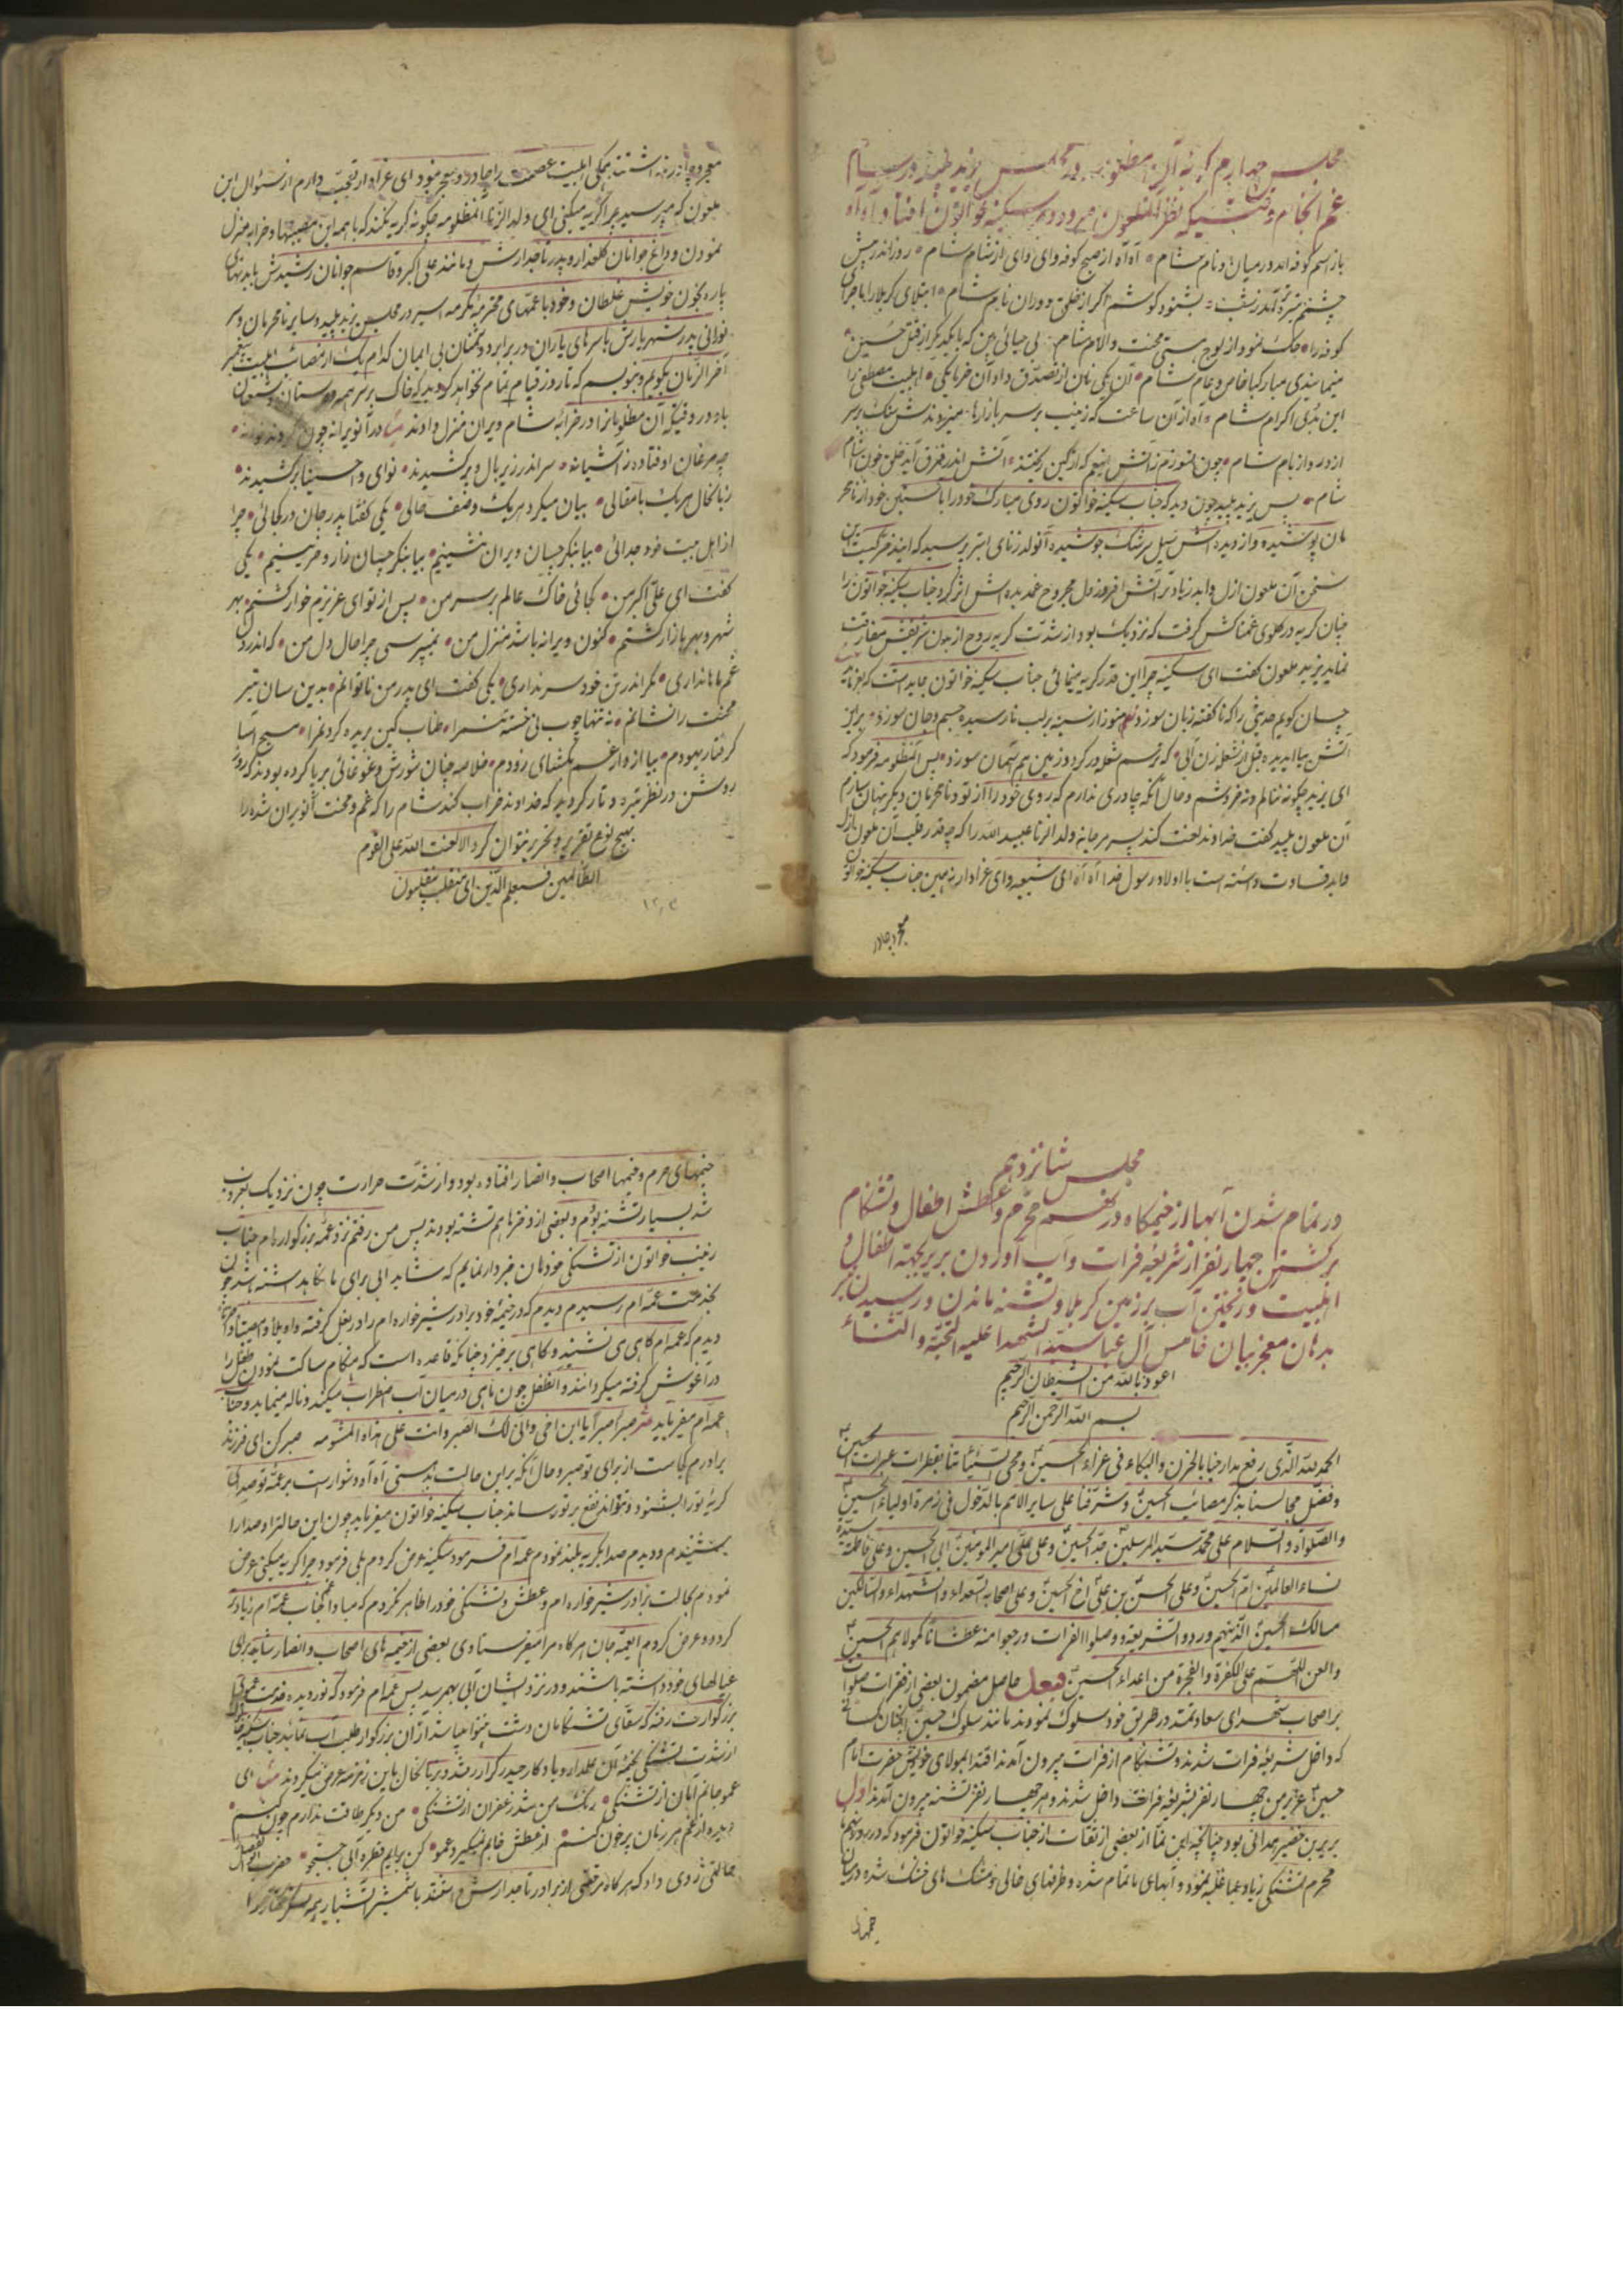 مجلس چهارم گریه آن مظلومه در مجلس یزید پلید در شام
غم انجام وقتیکه نظر آنملعون مردود بر سکینه خواتون افتاد و آه آه
باز اسم کوفه آمد در میان و نام شام آه آه از صبح کوفه وای وای از شام شام روز اندر پیش
چشمم تیره آمد زشب بشنود گوشم اگر از خلق دوران نام شام ابتلای کربلا را با جرای
کوفه را حک نمود از لوح هستی محنت و آلام شام بی حیائی بین که با یکدیگر از قتل حسین
مینمایندی مبارکباد خاص و عام شام آن یکی نان از تصدق داد آن خرما یکی اهلبیت مصطفی را
این بدی اکرام شام آه از آن ساعت که زینب بر سر بازارها میزدندش سنک بر سر
از در و از بام شام چون هنوزم زآتش
شام پس یزید پلید چون دید که جناب سکینه خواتون روی مبارک خود را با آستین خود از نامحر
مان پوشیده و از دیده اش سیل سرشک جوشیده آنولد زنای ابتر پرسید که ایندختر کیست این
سخن آن ملعون ازل و ابد زیاد بر آتش افروز دل مجروح غمدیده اش اثر کرد جناب سکینه خواتون را
چنان گریه در گلوی غمناکش گرفت که نزدیک بود از شدت گریه روح از بدن شریفش مفارقت
نماید یزید ملعون گفت ای سکینه چرا این قدر گریه مینمائی جناب سکینه خواتون
چسان گویم حدیثی را که ناگفته زبان سوزد هنوز از سینه بر لب نارسیده جسم و جان سوزد
آتش بیا ای دیده قبل از شعله زن آبی که ترسم شعله ور گردد زمین هم آسمان سوزد پس آنمظلومه فرمود که
ای یزید چگونه ننالم و نه خروشم و حال آنکه چادری ندارم که روی خود را از تو و نامحرمان دیگر پنهان سازم
آن ملعون پلید گفت خداوند لعنت کند پسر مرجانه ولد الزنا عبید الله را که چه قدر
و ابد قساوت داشته است با اولاد رسول خدا آه آه ای شیعه و ای عزادار نه همین جناب سکینه خواتون
معجر و چادر
معجر و چادر نداشتند همگی اهلبیت عصمت را چادر و معجر نبود ای عزادار تعجب دارم از سئوال این
ملعون که میپرسید چرا گریه میکنی ای ولد الزنا آنمظلومه چگونه گریه نکند که با همه این مصیبتها و خرابه منزل
نمودن و داغ جوانان گلعذار و پدر تاجدارش و مانند علی اکبر و قاسم جوانان رشیدش با بدنهای
پاره بخون خویش غلطان و خود با عمه‌های محترمه مکرمه اسیر در مجلس یزید پلید و سایر نامحرمان و سر
نورانی پدر شهریارش با سرهای یاران در برابر و دشمنان بی ایمان کدام یک از مصائب اهلبیت پیغمبر
آخر الزمان بگویم و بنویسم که تا روز قیام تمام نخواهد گردید که خاک بر سر همه دوستان
باد در وقتیکه آن مظلومانرا در خرابهٔ شام ویران منزل دادند در آنویرانه چون
چه مرغان اوفتاده ز آشیانه سر اندر زیر بال و پر کشیدند نوای وا حسینا بر کشیدند
زبانحال هریک با مقالی بیان میکرد هریک وصف حالی یکی گفتا پدر جان در کجائی چرا
از اهل بیت خود جدائی بیا بنگر چسان ویران نشینیم بیا بنگر چسان زار و حزینیم یکی
گفت ای علی اکبر من کجائی خاک عالم بر سر من پس از تو ای عزیزم خوار گشتم بهر
شهر و بهر بازار گشتم کنون ویرانه باشد منزل من نمیپرسی چرا حال دل من که اندر دل
غم ما نداری مگر اندر تن خود سر نداری یکی گفت ای پدر من ناتوانم بدین سان تیر
محنت را نشانم نه تنها چوب بی خسته تنمرا طناب کین بریده گردنمرا مسیح آسا
گرفتار یهودم بیا از دار غم بگشای زودم خلاصه چنان شورش و غوغائی برپا کرده بودند که روز
روشن در نظر تیره و تار گردید که خداوند خراب کند شام را که غم و محنت آنویران شده را
بهیچ نوع تقریر و تحریر نتوان کرد الا لعنت الله علی القوم
الظالمین فسیعلم الذین ای منقلب ینقلبون
مجلس شانزدهم
در تمام شدن آبها از خیمگاه در هفتم محرم و عطش اطفال و تشنکام
برگشتن چهار نفر از شریعه فرات و آب آوردن بریر بجهة اطفال
اهلبیت و ریختن آب بر زمین کربلا و تشنه ماندن و رسیدن
بدهان معجز بیان خامس آل عبا سید الشهدا علیه التحیة و الثناء
اعوذ بالله من الشیطان الرجیم
بسم الله الرحمن الرحیم
الحمد لله الذی رفع مدارجنا بالحزن والبکاء فی عزاء الحسین ومحی سیئاتنا بقطرات عبرات الحسین
وفضل مجالسنا بذکر مصائب الحسین وشرفنا علی سایر الامم بالدخول فی زمرة اولیاء الحسین
والصلواة والسلام علی محمد سید المرسلین جد الحسین وعلی علی امیر المومنین ابی الحسین وعلی فاطمة سیدة
نساء العالمین ام الحسین وعلی الحسن بن علی اخ الحسین وعلی اصحابه السعداء والشهداء والسالکین
مسالک الحسین الذینهم وردوا الشریعة ووصلوا الفرات ورجعوا منه عطشانا کمولاهم الحسین
والعن اللهم علی الکفرة والفجرة من اعداء الحسین فبعد حاصل مضمون بعضی از فقرات صلوات
بر اصحاب شهدای سعادتمند در طریق خود سلوک نمودند مانند سلوک حسین
که داخل شریعه فرات شدند و تشنکام از فرات بیرون آمدند اقتدا بمولای خویش حضرت امام
حسین عزیز من چهار نفر بشریعه فرات داخل شدند و هر چهار نفر تشنه بیرون آمدند اول
بریر بن خضیر همدانی بود چنانچه ابن نما از بعضی از ثقات از جناب سکینه خواتون فرمود که در روز نهم
محرم تشنگی زیاد بما غلبه نمود و آبهای ما تمام شده و ظرفهای خالی و مشک های خشک شده در میان
خیمهای
خیمهای حرم و خیمها اصحاب و انصار افتاده بود و از شدت حرارت چون نزدیک بغروب
شد بسیار تشنه بودم و بعضی از دخترها هم تشنه بودند پس من رفتم نزد عمه بزرگوارم جناب
زینب خواتون از تشنگی خودمان خبردار نمایم که شاید آبی برای ما نگاهداشته باشد چون
بخدمت عمه ام رسیدم دیدم که در خیمهٔ خود برادر شیرخواره ام را در بغل گرفته
دیدم که عمه ام گاهی می نشیند و گاهی برخیزد چنانکه قاعده است که هنگام ساکت نمودن طفل را
در آغوش گرفته میگردانند و آنطفل چون ماهی در میان آب اضطراب میکند و ناله مینماید و جناب
عمه ام میفرماید صبرا صبرا یا ابن اخی وانی لک الصبر وانت علی هذه المشومه صبر کن ای فرزند
برادرم کجاست از برای تو صبر و حال آنکه بر این حالت هستی آه آه دشوار است بر عمه تو صدای
گریه تو را بشنود و نتواند نفع بر تو رساند جناب سکینه خواتون میفرماید چون این حالترا و صدا را
بشنیدم و دیدم صدا بگریه بلند نمودم عمه ام فرمود سکینه عرض کردم بلی فرمود چرا گریه میکنی عرض
نمودم بحالت برادر شیرخواره ام و عطش و تشنگی خود را ظاهر نکردم که مبادا جناب عمه ام زیادتر
گردد و عرض کردم ایعمه جان هرگاه مرا میفرستادی بعضی از خیمه های اصحاب و انصار شاید برای
عیالهای خود داشته باشند و در نزد ایشان آبی بهم رسد پس عمه ام فرمود که نور دیده خدمت عموی
بزرگوارت رفته که سقای تشنگان دشت نینوا میباشد از آن بزرگوار طلب آب نماید جناب سکینه
از شدت تشنگی بخیمه آن علمدار و یادگار حیدر کرار رفته و بزبانحال باین زمزمه عرض میکردند ای
عمو جانم امان از تشنگی رنک من شد زعفران از تشنگی من دیگر طاقت ندارم چون کنم
دیده از غم هر زمان پر خون کنم از عطش خوابم نمیگیرد عمو کن برایم قطره آبی جستجو حضرت ابوالفضل
حالتی روی داد که هرگاه مرخصی از برادر تاجدارش داشتند با شمشیر آتشبار